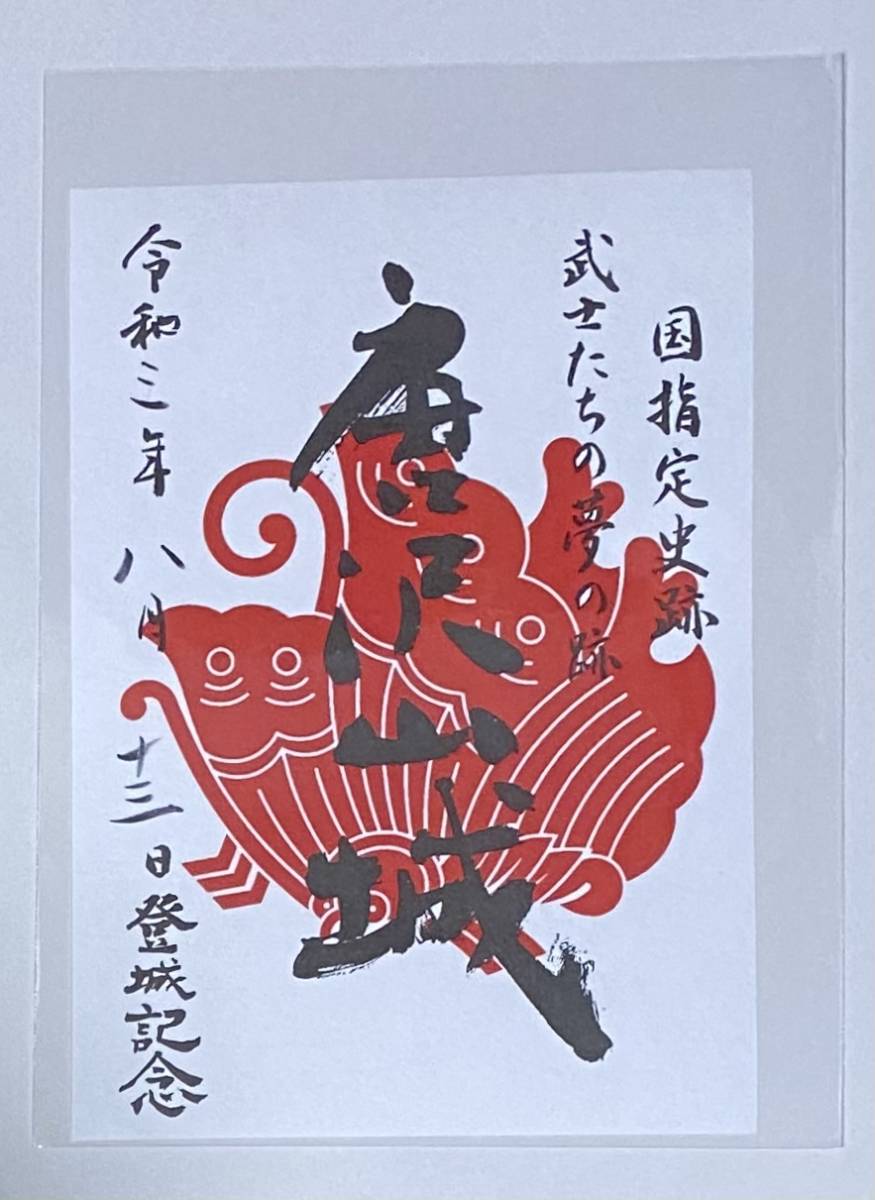 国指定史跡
武士たちの夢の跡
唐沢山城
令和三年 八月 十三日登城記念